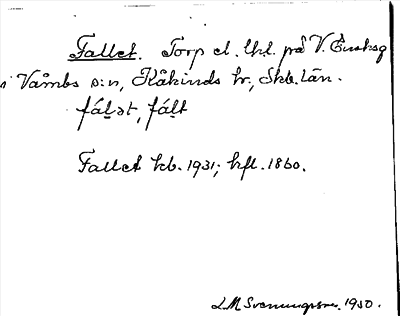 Fallet. Torp el. lht. på V. Ênskog
i Våmbs s:n, Kåkinds hr, Skb. län.
fáḷət, fáḷt
Fallet kb. 1931; hfl. 1860.
L M Svenungsson. 1930.